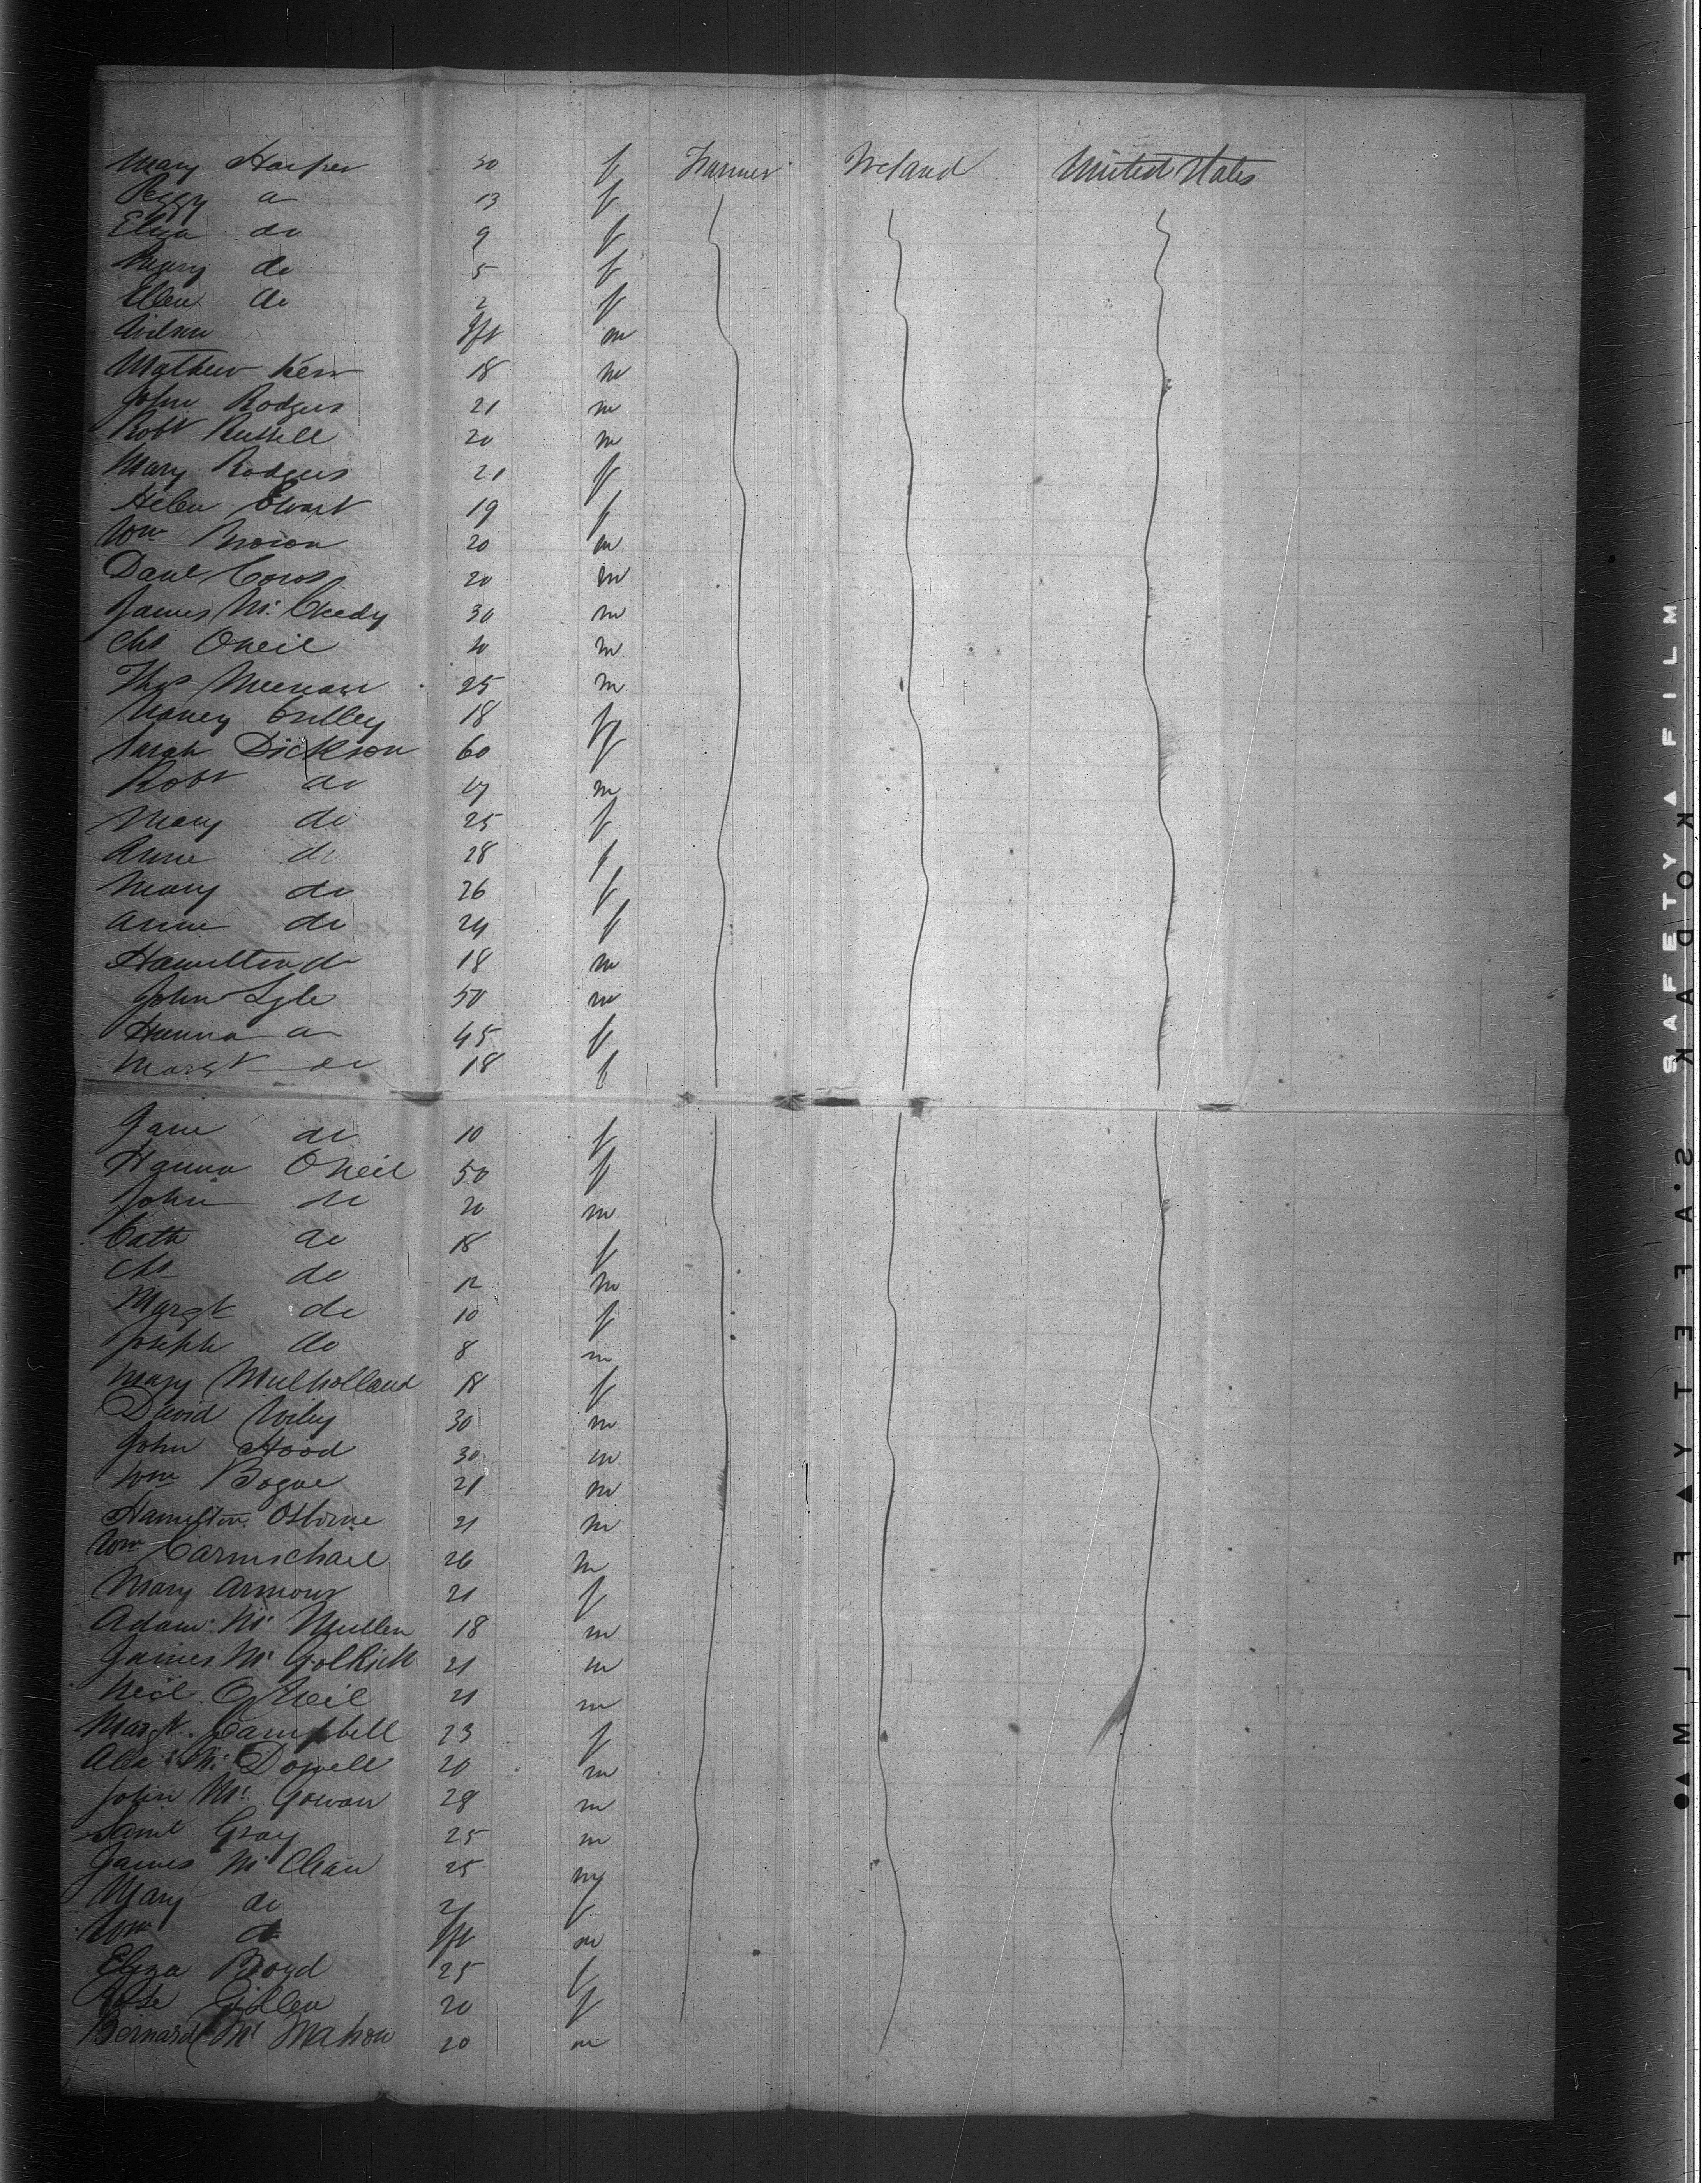 Mary Harper 30 f Farmer Ireland United States
Peggy do 13 f
Eliza do 9 f
Mary do 5 f
Ellen do 2 f
Ift m
Mathew Kerr 18 m
John Rodgers 21 m
Robt Russell 20 m
Mary Rodgers 21 f
Helen Ewart 19 f
Wm Brown 20 m
Danl 20 m
James Mc 30 m
Chs ONeil m
Thos Meenan 25 m
Nancy 18 f
Sarah Dickson 60 f
Robt do m
Mary do 25 f
Anne do 28 f
Mary do 26 f
Anne do 24 f
Hamilton do 18 m
John Lyle 50 m
Hanna do 45 f
Margt do 18 f
Jane do 10 f
Hanna ONeil 50 f
John do 20 m
Cath do 18 f
Chs do 12 m
Margt do 10 f
Joseph do 8 m
Mary Mulholland 18 f
David Wiley 30 m
John Hood 30 m
Wm Bogue 21 m
Hamilton Osborne 21 m
Wm Carmichael 26 m
Mary Armour 21 f
Adam Mc Mullen 18 m
James Mc Golrick 21 m
Neil O Neil 21 m
Margt Campbell 23 f
Alex Mc Dowell 20 m
John Mc Gowan 28 m
Saml Gray 25 m
James Mc Clean 25 m
Mary do 21 f
Wm do Ift m
Eliza Boyd 25 f
Rose Gillen 20 f
Bernard Mc Mahon 20 m
SAFETY FILM
KODAK
S'AFETY FILM